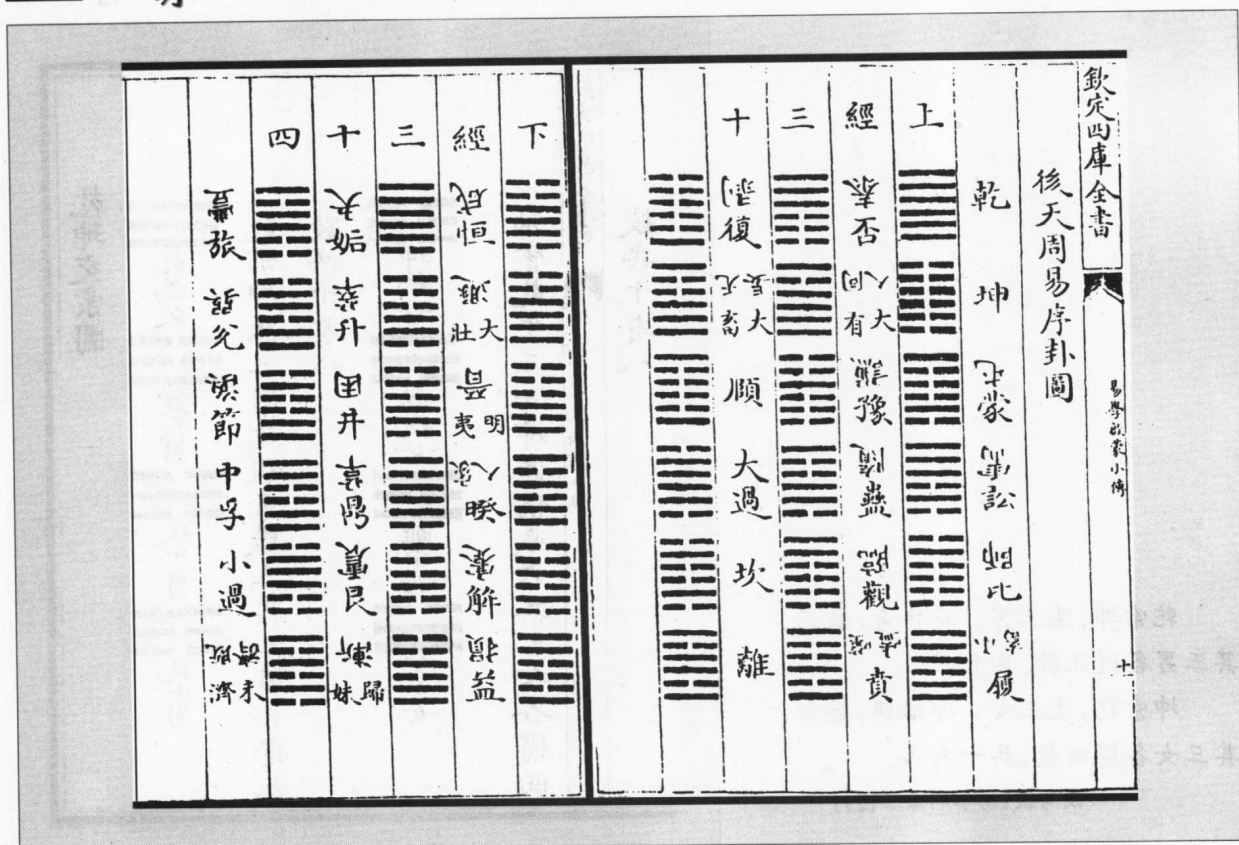 欽定四庫全書
易學啟蒙小傳
十
後天周易序卦圖
乾 坤 屯蒙 需訟 師比 小畜履
上
經 泰否 同人大有 謙豫 隨蠱 臨觀 噬嗑賁
三
十 剝復 无妄大畜 頤 大過 坎 離
下
經 咸恒 遯大壯 晉明夷 家人睽 蹇解 損益
三
十 夬姤 萃升 困井 革鼎 震艮 漸歸妹
四
豐旅 巽兌 渙節 中孚 小過 既濟未濟